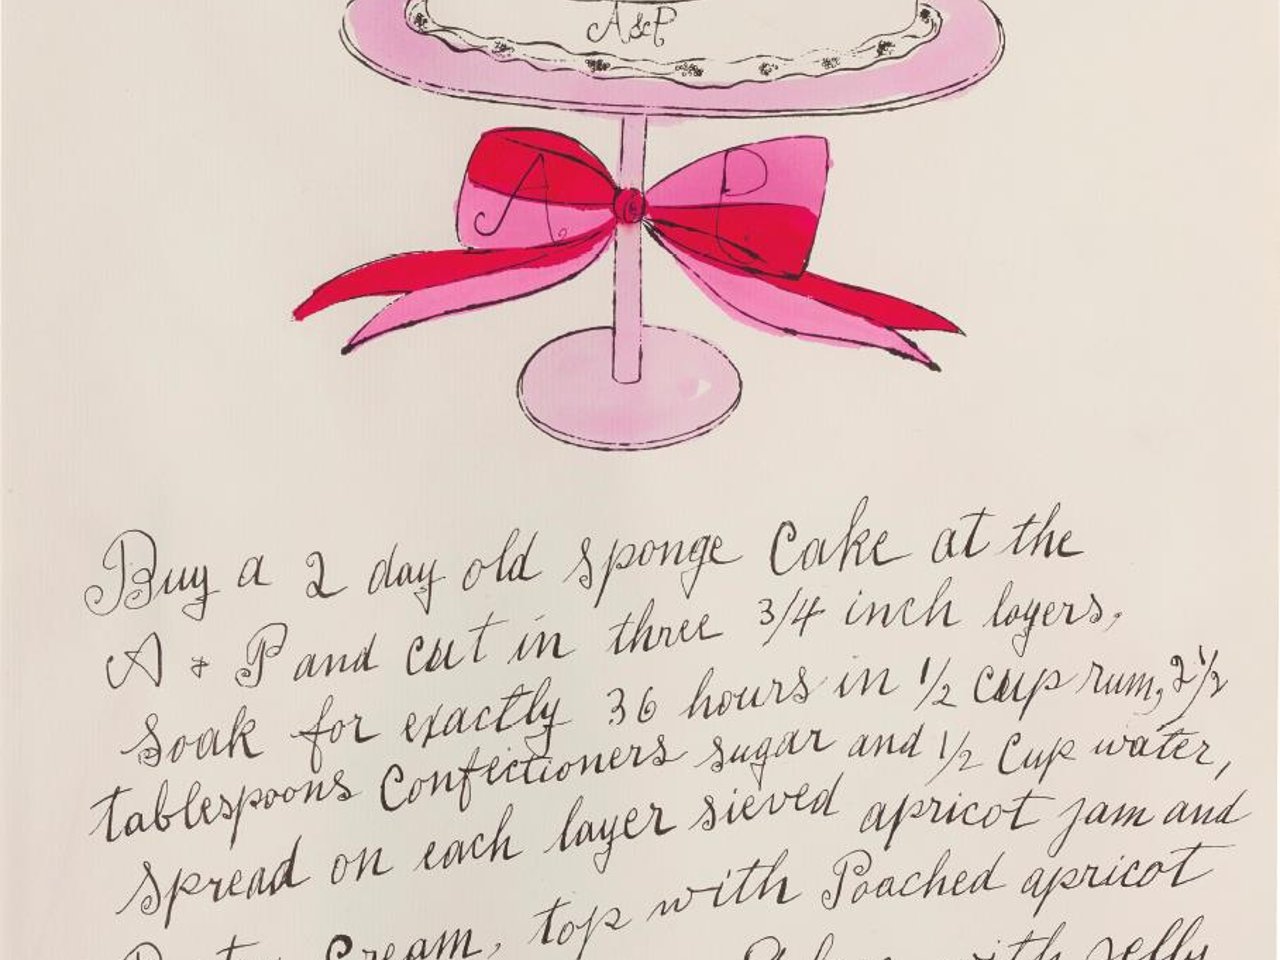 A&P
A P
Buy a 2 day old sponge Cake at the
A + P and cut in three 3/4 inch layers,
Soak for exactly 36 hours in 1/2 cup rum, 2 1/2
tablespoons Confectioners sugar and 1/2 Cup water,
spread on each layer sieved apricot jam and
Cream, top with Poached apricot
with Jelly